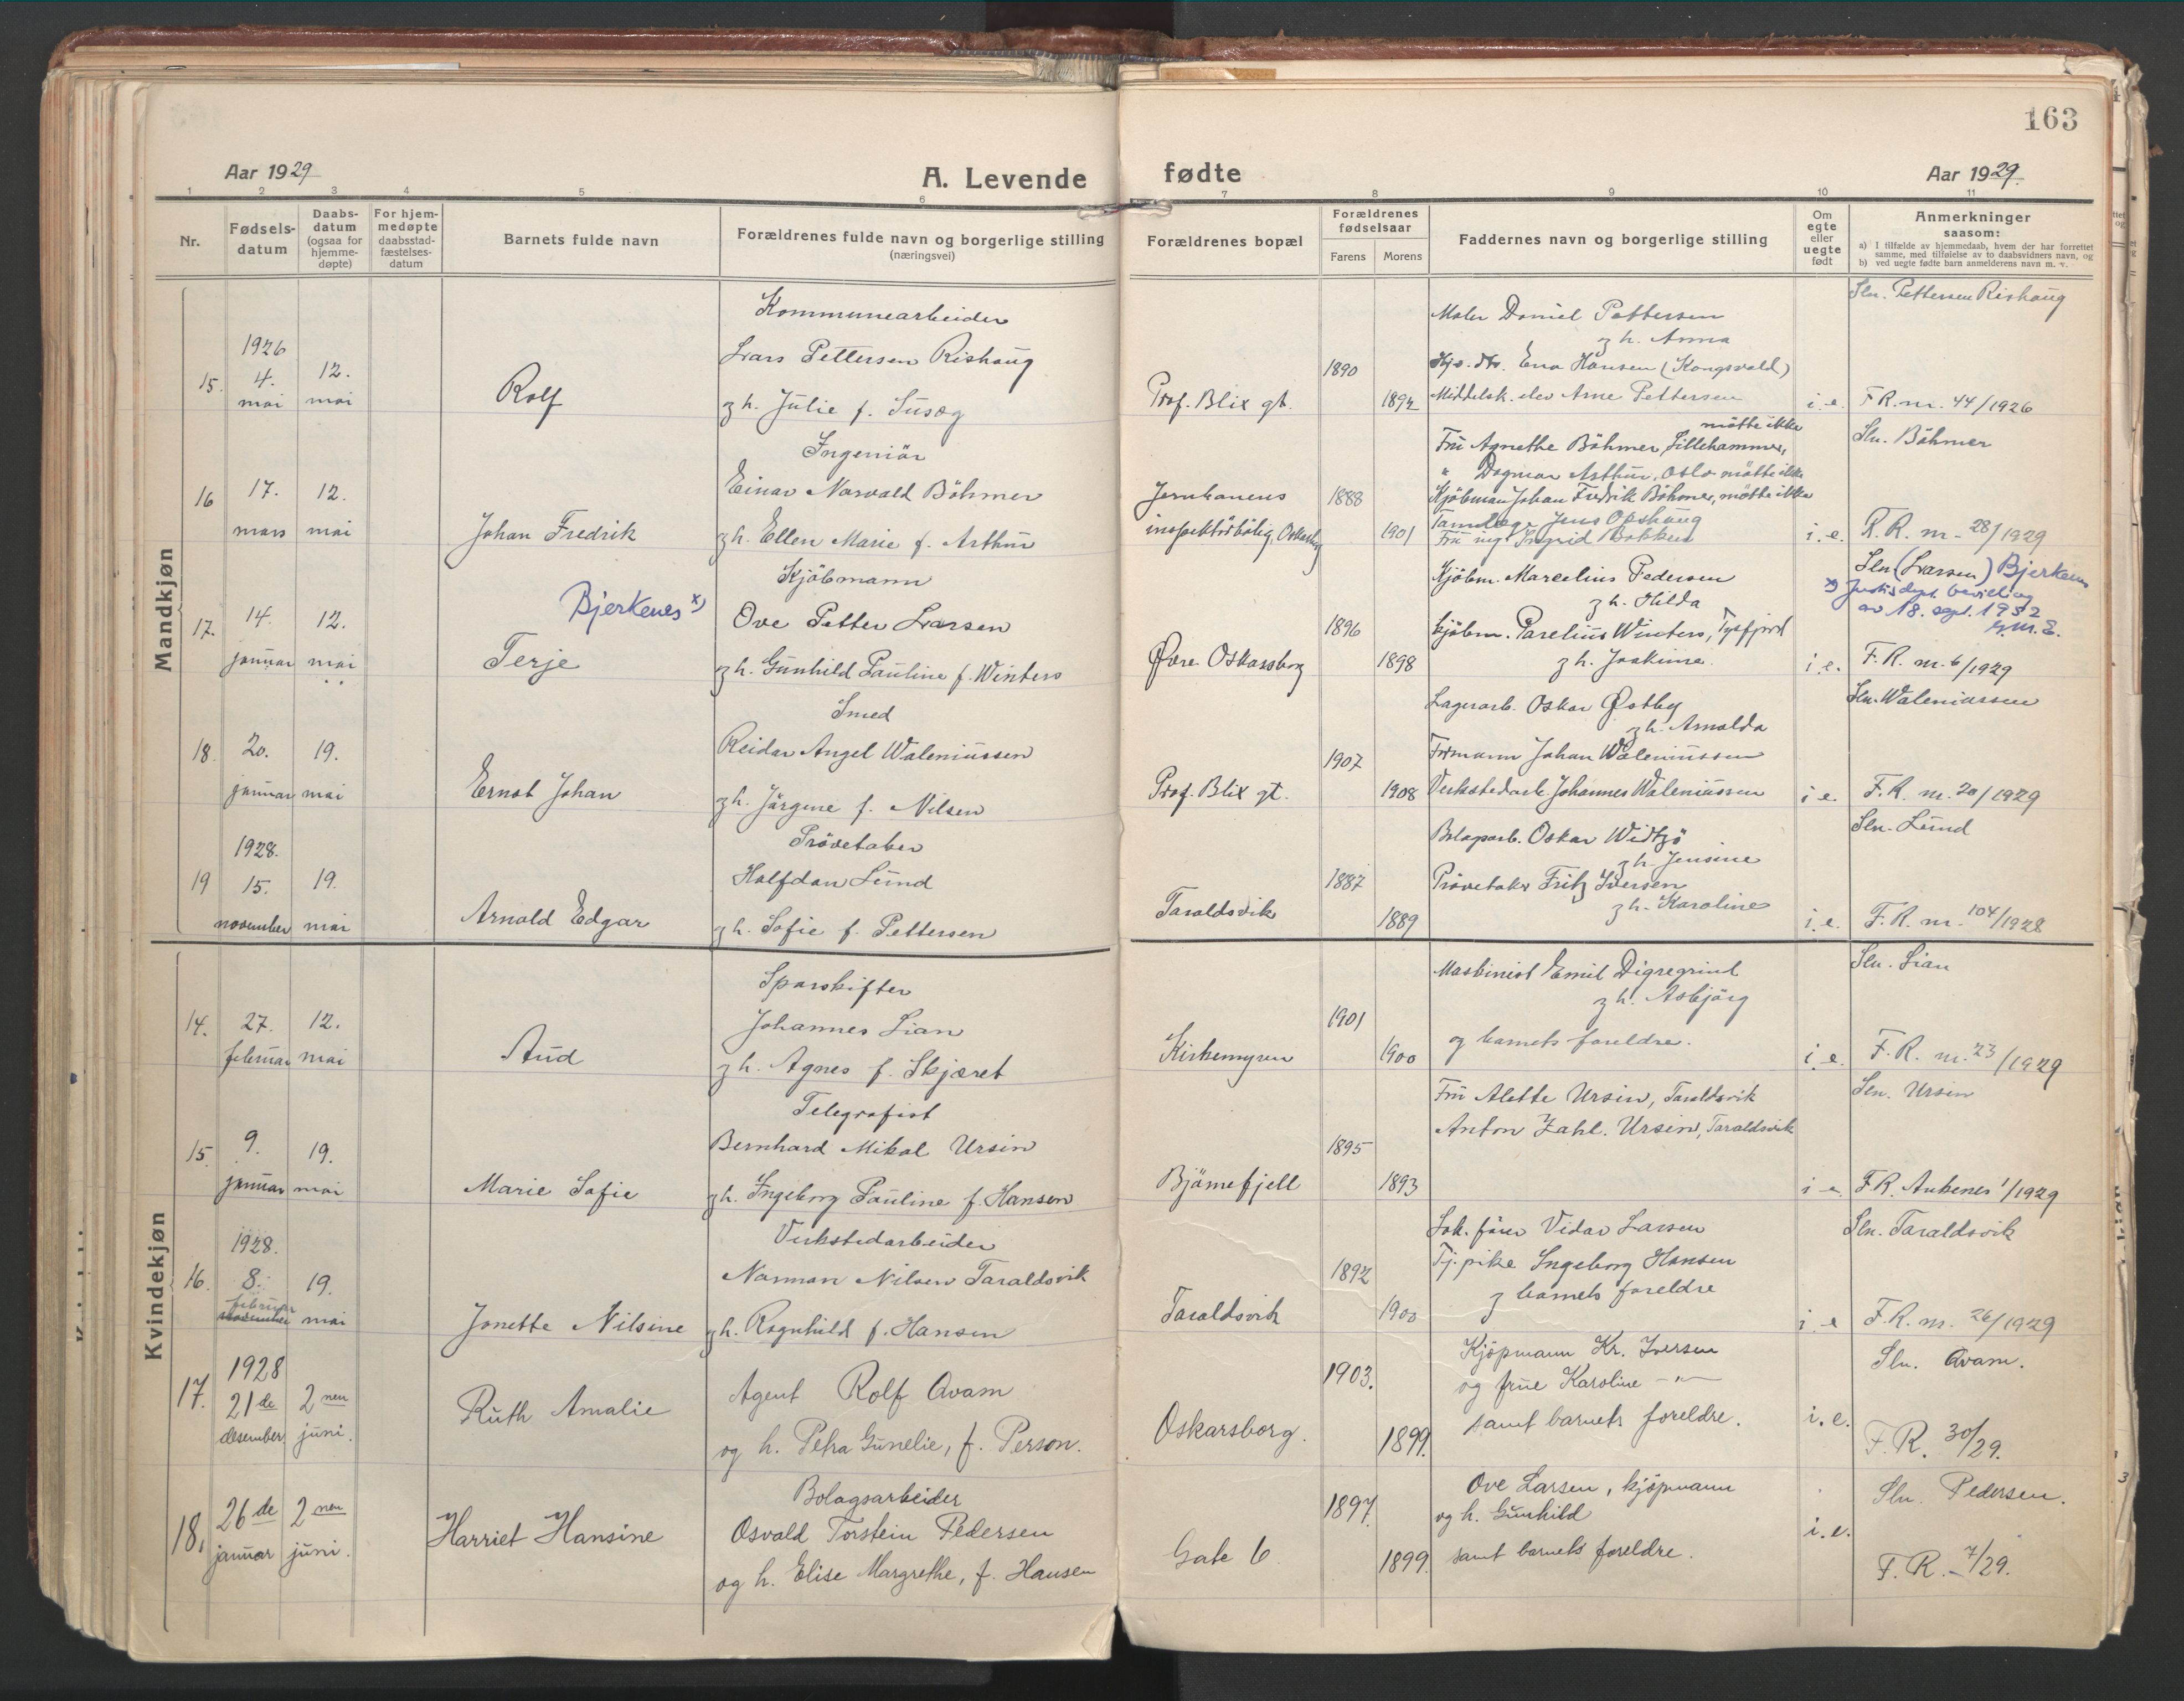 163
Aar 1929
A. Levende fødte
Aar 1929.
1 2 3 4 5 6 7 8 9 10 11
Nr.
Fødsels-
datum
Daabs-
datum
(ogsaa for
hjemme-
døpte)
For hjem-
medøpte
daabsstad-
fæstelses-
datum
Barnets fulde navn
Forældrenes fulde navn og borgerlige stilling
(næringsvei)
Forældrenes bopæl
Forældrenes
fødselsaar
Farens
Morens
Faddernes navn og borgerlige stilling
Om
egte
eller
uegte
født
Anmerkninger
saasom:
a) I tilfælde av hjemmedaab, hvem der har forrettet
samme, med tilføielse av to daabsvidners navn, og
b) ved uegte fødte barn anmelderens navn m. v.
Mandkjøn
15.
1926
4.
mai
12.
mai
Rolf
Kommunearbeider
Lars Pettersen Rishaug
g h. Julie f. Susæg
Prof. Blix gt.
1890
1892
Maler Daniel Pettersen
g h. Anna
Hjs. dtr. Ena Hansen (Kongsvald)
Middelsk. elev Arne Pettersen
i. e.
Sln. Pettersen Rishaug
F R. nr. 44/1926
16
17.
mars
12.
mai
Johan Fredrik
Ingeniör
Einar Norvald Böhmer
g h. Ellen Marie f. Arthur
Jernbanens
inspektörbolig, Oskarsbg
1888
1901
møtte ikke
Fru Agnethe Böhmer, Lillehammer,
" Dagmar Arthur, Oslo møtte ikke
Kjöbman Johan Fredrik Böhmer, møtte ikke
Tannlæge Jens Opshaug
Fru ing. Ingrid Bakken
i. e.
Sln. Böhmer
F. R. nr. 28/1929
17.
14.
januar
12.
mai
Bjerkenes x)
Terje
Kjöbmann
Ove Petter Larsen
g h. Gunhild Pauline f. Winters
Øvre Oskarsborg
1896
1898
Kjöbm. Marcelius Pedersen
g h. Hilda
kjöbm. Parelius Winters, Tysfjord
g h. Joakime.
i. e.
Sln (Larsen) Bjerkenes
x) Justisdept. bevilling
av 18. sept. 1952
F. R. nr. 6/1929
18.
20.
januar
19.
mai
Ernst Johan
Smed
Reidar Angel Waleniussen
g h. Jörgine f. Nilsen
Prof. Blix gt.
1907
1908
Lagerarb. Oskar Østby
g h. Arnolda
Formann Johan Waleniussen
Verkstedarb Johannes Waleniussen
i. e.
Sln. Waleniussen
F. R. nr. 20/1929
19
1928.
15.
november
19.
mai
Arnold Edgar
Prövetaker
Halfdan Lund
g h. Sofie f. Pettersen
Taraldsvik
1887
1889
Bolagsarb. Oskar Widtzö
g h. Jensine
Prövetaker Fritz Iversen
g h. Karoline
i. e.
Sln. Lund
F. R. nr. 104/1928
Kvindekjøn
14.
27.
februar
12.
mai
Aud
Sporskifter
Johannes Lian
g h. Agnes f. Skjæret
Kirkemyren
1901
1900
Maskinist Emil Digregrind
g h. Asbjörg
og barnets foreldre.
i. e.
Sln. Lian
F. R. nr. 23/1929
15.
9.
januar
19.
mai
Marie Sofie
Telegrafist
Bernhard Mikal Ursin
g h. Ingeborg Pauline f. Hansen
Bjömefjell
1895
1893
Fru Alette Ursin, Taraldsvik
Anton Zahl. Ursin, Taraldsvik
i. e.
Sln. Ursin
F. R. Ankenes 1/1929
16.
1928.
8.
februar
november
19.
mai
Jonette Nilsine
Verkstedarbeider
Norman Nilsen Taraldsvik
g h. Ragnhild f. Hansen
Taraldsvik
1892
1900
Lok. fører Vidar Larsen
Tj. pike Ingeborg Hansen
g barnets foreldre
i. e
Sln. Taraldsvik
F. R. nr. 26/1929
17.
1928
21de
desember
2nen
juni.
Ruth Amalie
Agent Rolf Qvam
og h. Petra Gunelie, f. Person.
Oskarsborg.
1903.
1899.
Kjöpmann Kr. Iversen
og frue Karoline -"-
samt barnets foreldre.
i. e.
Sln. Qvam.
F. R. 30/29.
18.
26de
januar
2nen
juni.
Harriet Hansine
Bolagsarbeider
Osvald Torstein Pedersen
og h. Elise Margrethe, f. Hansen
Gate 6
1897.
1899.
Ove Larsen, kjöpmann
og h. Gunhild
samt barnets foreldre.
i. e.
Sln. Pedersen.
F. R. 7/29.